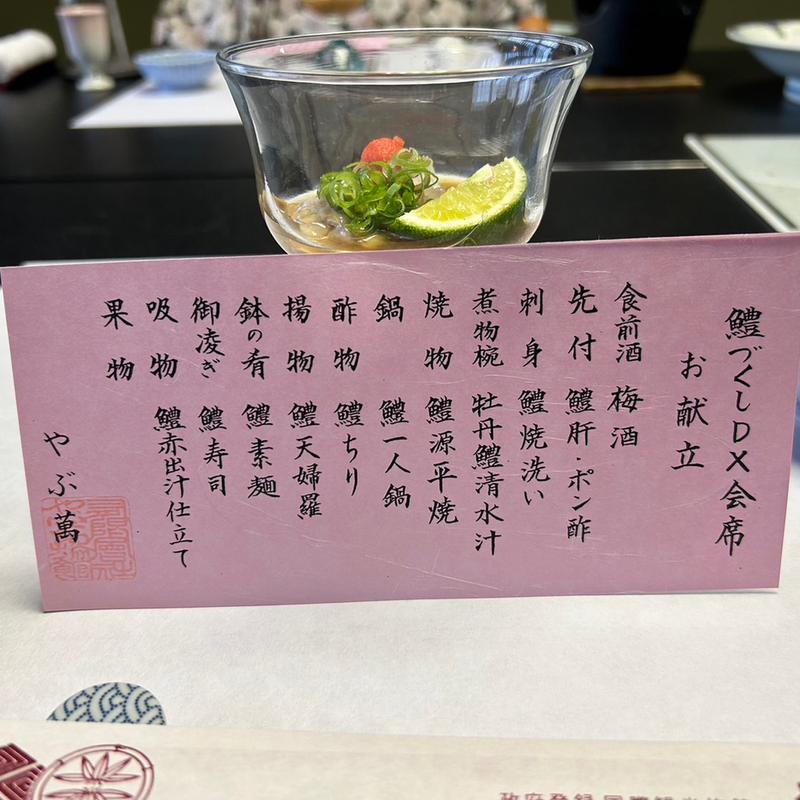 鱧づくしDX会席
お献立
食前酒 梅酒
先付 鱧肝・ポン酢
刺身 鱧焼洗い
煮物椀 牡丹鱧清水汁
焼物 鱧源平焼
鍋 鱧一人鍋
酢物 鱧ちり
揚物 鱧天婦羅
鉢の肴 鱧素麺
御凌ぎ 鱧寿司
吸物 鱧赤出汁仕立て
果物
やぶ萬